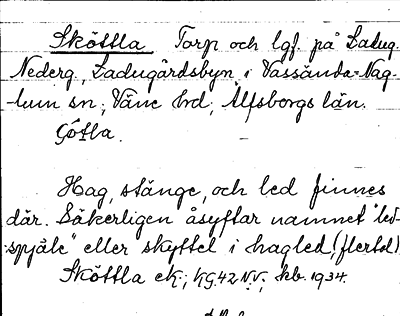 Sköttla Torp och lgf. på Ladug.
Nederg., Ladugårdsbyn i Vassända-Nag-
lum sn; Väne hd; Älfsborgs län.
Götla.
Hag, stänge, och led finnes
där. Säkerligen åsyftar namnet "led-
spjäle" eller skyttel i hagled, (flertal)
Sköttla ek; KG.42 N.V.; kb. 1934.